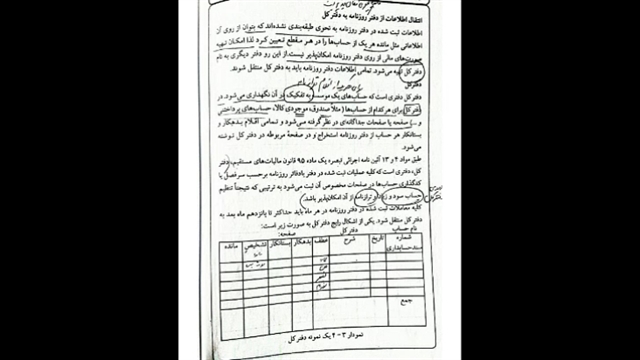 انتقال اطلاعات از دفتر روزنامه به دفتر کل
اطلاعات ثبت شده در دفتر روزنامه به نحوی طبقه‌بندی نشده‌اند که بتوان از روی آن
اطلاعاتی مثل مانده هر یک از حساب‌ها را در هر مقطع تعیین کرد لذا امکان تهیه
صورت‌های مالی از روی دفتر روزنامه امکان‌پذیر نیست. از این رو دفتر دیگری به نام
دفتر کل تهیه می‌شود. تمامی اطلاعات دفتر روزنامه باید به دفتر کل منتقل شوند.
دفتر کل
دفتر کل دفتری است که حساب‌های یک موسسه به تفکیک در آن نگهداری می‌شود. در
دفتر کل برای هر کدام از حساب‌ها (مثلاً صندوق، موجودی کالا، حساب‌های پرداختنی
و ...) صفحه یا صفحات جداگانه‌ای در نظر گرفته می‌شود و تمامی اقلام بدهکار و
بستانکار هر حساب از دفتر روزنامه استخراج و در صفحهٔ مربوطه در دفتر کل نوشته
می‌شود.
طبق مواد ۹ و ۱۳ آئین نامه اجرائی تبصره یک ماده ۹۵ قانون مالیات‌های مستقیم، دفتر
کل، دفتری است که کلیه عملیات ثبت شده در دفتر یا دفاتر روزنامه بر حسب سرفصل یا
کدگذاری حساب‌ها در صفحات مخصوص آن ثبت می‌شود به ترتیبی که نتیجتاً تنظیم
حساب سود و زیان و ترازنامه از آن امکان‌پذیر باشد.
کلیه معاملات ثبت شده در دفتر روزنامه در هر ماه باید حداکثر تا پانزدهم ماه بعد به
دفتر کل منتقل شود. یکی از اشکال رایج دفتر کل به صورت زیر است:
نام حساب دفتر کل صفحه:
شماره سند حسابداری تاریخ شرح عطف بدهکار بستانکار تشخیص مانده
جمع
نمودار ۳ - ۴ یک نمونه دفتر کل